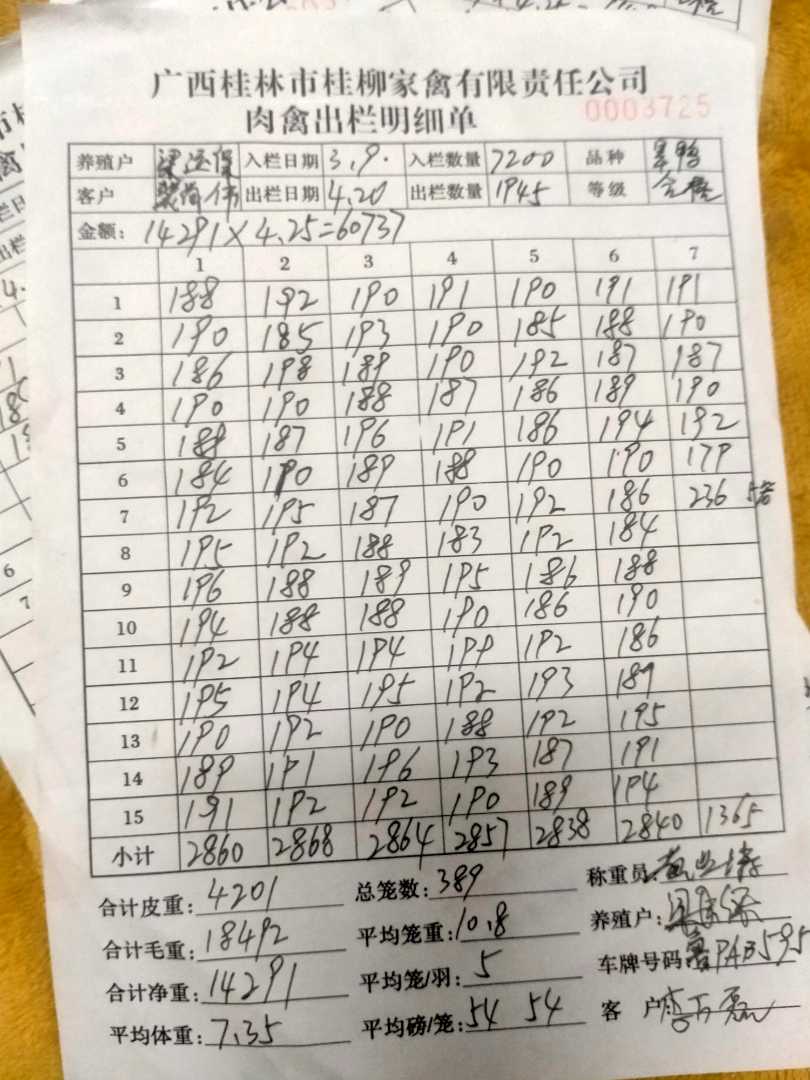 广西桂林市桂柳家禽有限责任公司
肉禽出栏明细单 0003725
养殖户 入栏日期 3.9. 入栏数量 7200 品种
客户 出栏日期 4.20 出栏数量 1945 等级 合格
金额: 14291×4.25=60737
1 2 3 4 5 6 7
1 188 192 190 191 190 191 191
2 190 185 193 190 185 188 190
3 186 198 189 190 192 187 187
4 190 190 188 187 186 189 190
5 188 187 196 191 186 194 192
6 184 190 189 188 190 190 179
7 192 195 187 190 192 186 236
8 195 192 188 183 192 184
9 196 188 189 195 186 188
10 194 188 188 190 186 190
11 192 194 194 199 192 186
12 195 194 195 192 193 189
13 190 192 190 188 192 195
14 189 191 196 193 187 191
15 191 192 192 190 189 194
小计 2860 2868 2864 2857 2838 2840 1365
合计皮重: 4201 总笼数: 389 称重员:
合计毛重: 18492 平均笼重: 10.8 养殖户:
合计净重: 14291 平均笼/羽: 5 车牌号码
平均体重: 7.35 平均磅/笼: 54 54 客 户: